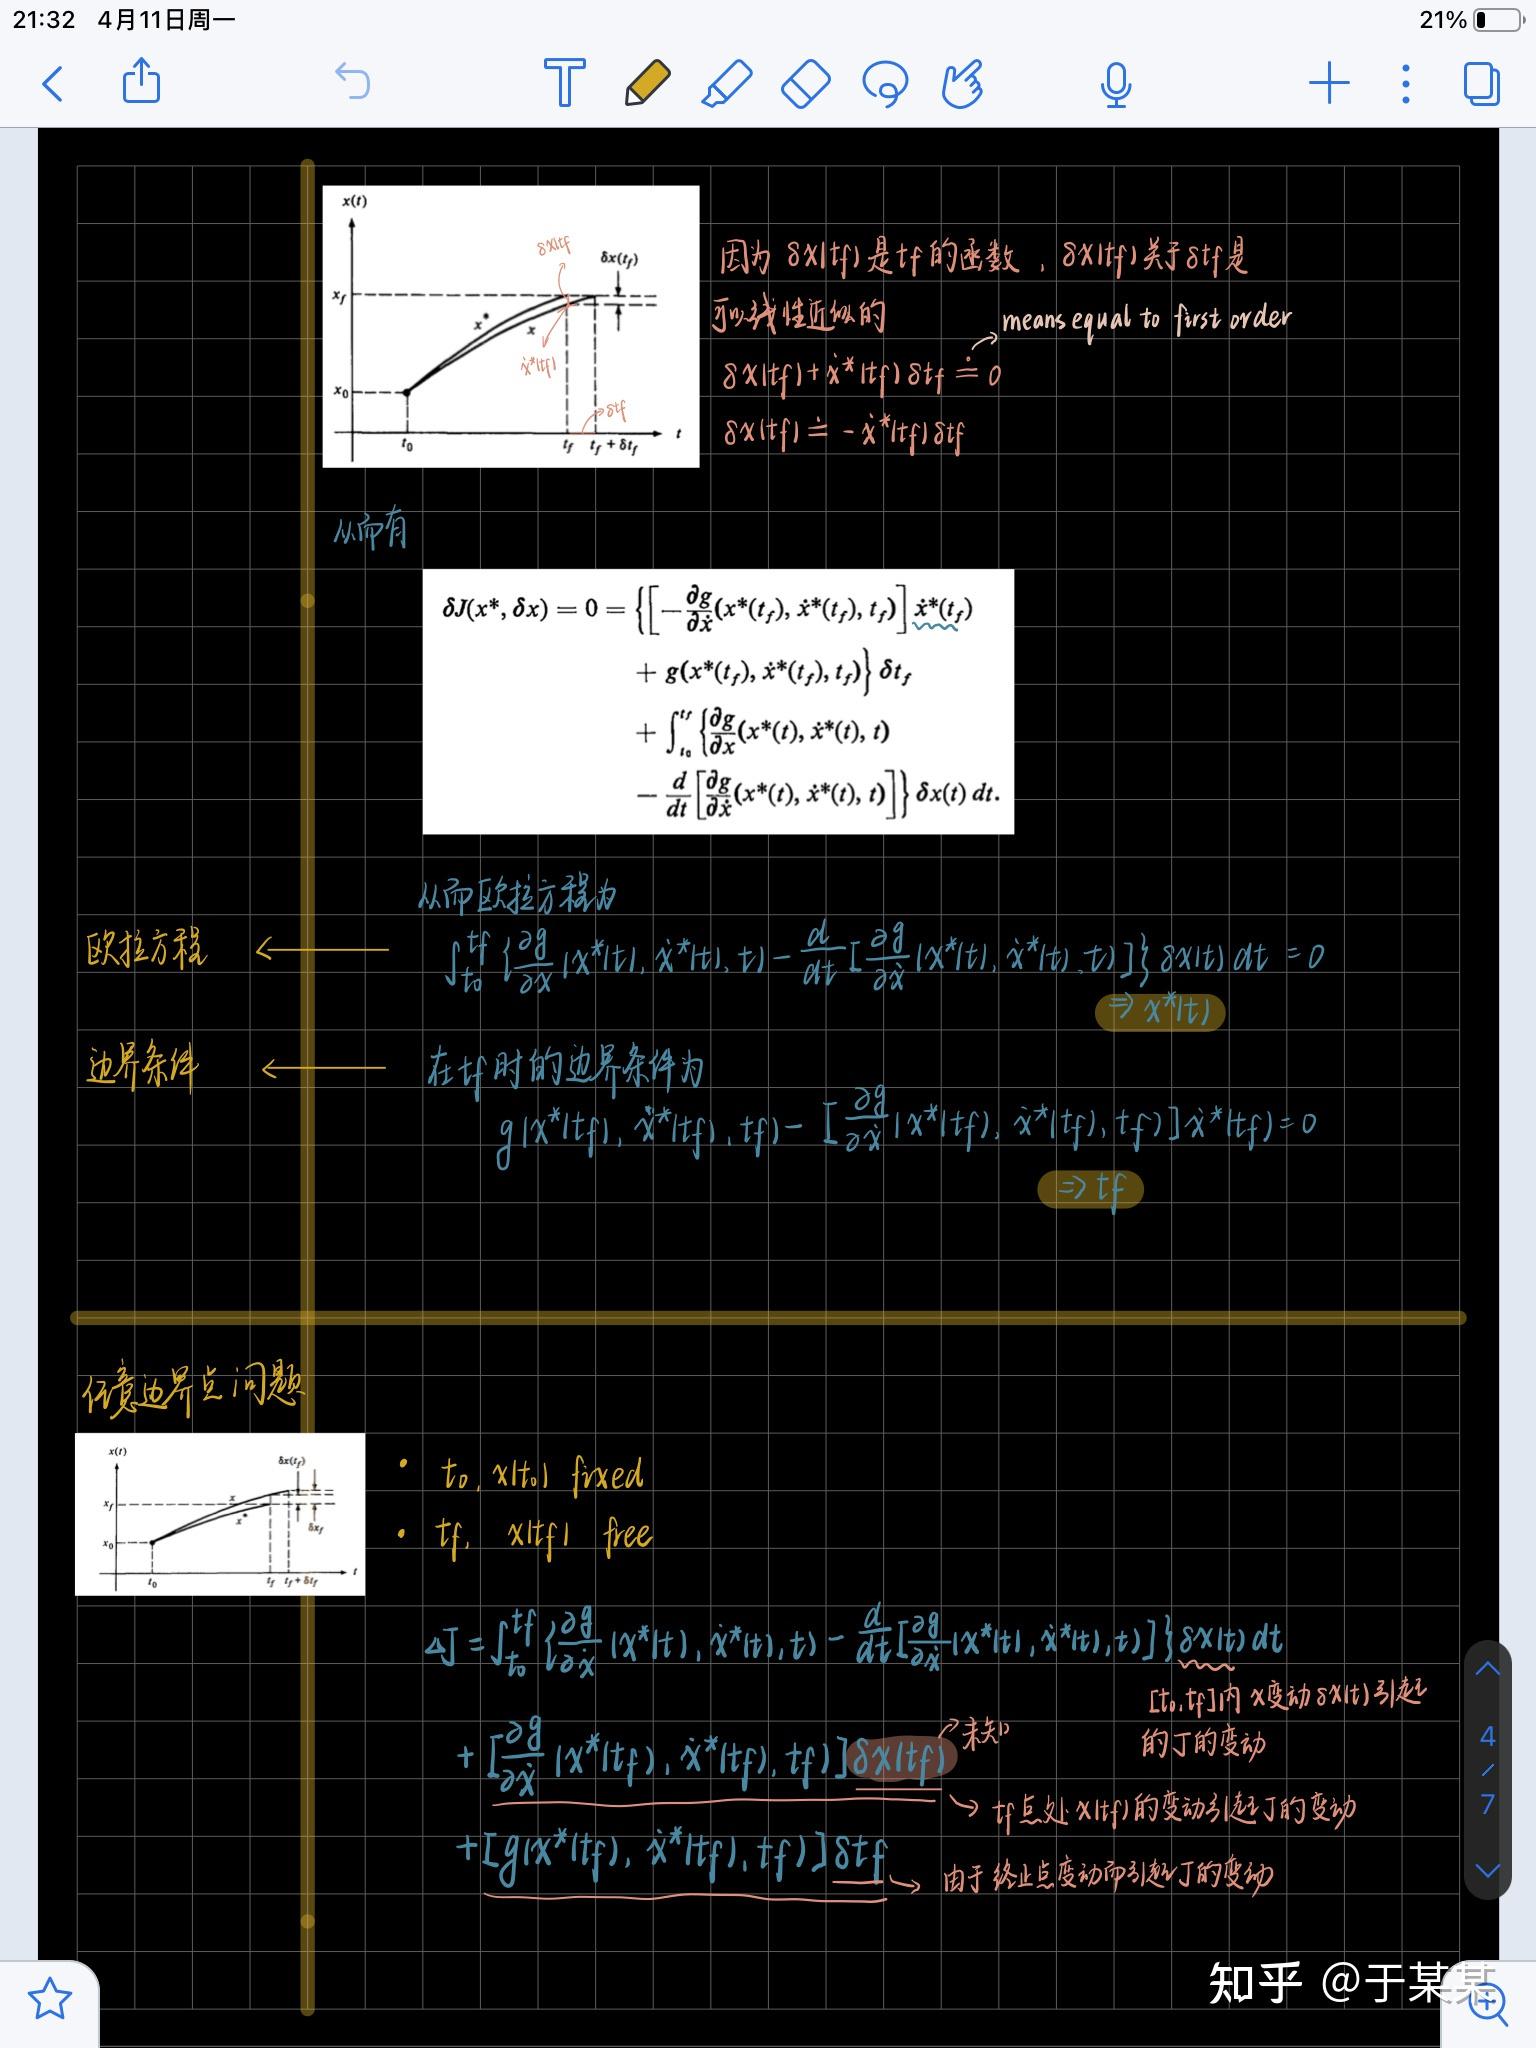 21:32 4月11日周一
21%
x(t)
δx(tf)
δx(t_f)
x_f
x*
x
ẋ*(tf)
x_0
δtf
t_0
t_f
t_f + δt_f
t
因为 δx(tf)是tf的函数，δx(tf)关于δtf是
可以线性近似的
means equal to first order
δx(tf)+ẋ*(tf)δtf ≐ 0
δx(tf) ≐ -ẋ*(tf)δtf
从而有
δJ(x*, δx) = 0 = {[-∂g/∂ẋ(x*(t_f), ẋ*(t_f), t_f)] ẋ*(t_f)
+ g(x*(t_f), ẋ*(t_f), t_f)} δt_f
+ ∫_{t_0}^{t_f} {∂g/∂x(x*(t), ẋ*(t), t)
- d/dt [∂g/∂ẋ(x*(t), ẋ*(t), t)]} δx(t) dt.
从而欧拉方程为
欧拉方程 ← ∫_{t0}^{tf} {∂g/∂x (x*(t), ẋ*(t), t) - d/dt [∂g/∂ẋ (x*(t), ẋ*(t), t)]} δx(t) dt = 0
⇒ x*(t)
边界条件 ← 在tf时的边界条件为
g(x*(tf), ẋ*(tf), tf) - [∂g/∂ẋ (x*(tf), ẋ*(tf), tf)] ẋ*(tf) = 0
⇒ tf
任意边界点问题
x(t)
δx(t_f)
x
x_f
x*
δx_f
x_0
t_0
t_f
t_f + δt_f
t
• t0, x(t0) fixed
• tf, x(tf) free
ΔJ = ∫_{t0}^{tf} {∂g/∂x (x*(t), ẋ*(t), t) - d/dt [∂g/∂ẋ (x*(t), ẋ*(t), t)]} δx(t) dt
[t0,tf]内 x变动δx(t)引起
的J的变动
+ [∂g/∂ẋ (x*(tf), ẋ*(tf), tf)] δx(tf)
未知
tf点处x(tf)的变动引起J的变动
+ [g(x*(tf), ẋ*(tf), tf)] δtf
由于终止点变动而引起J的变动
4
/
7
知乎 @于某某